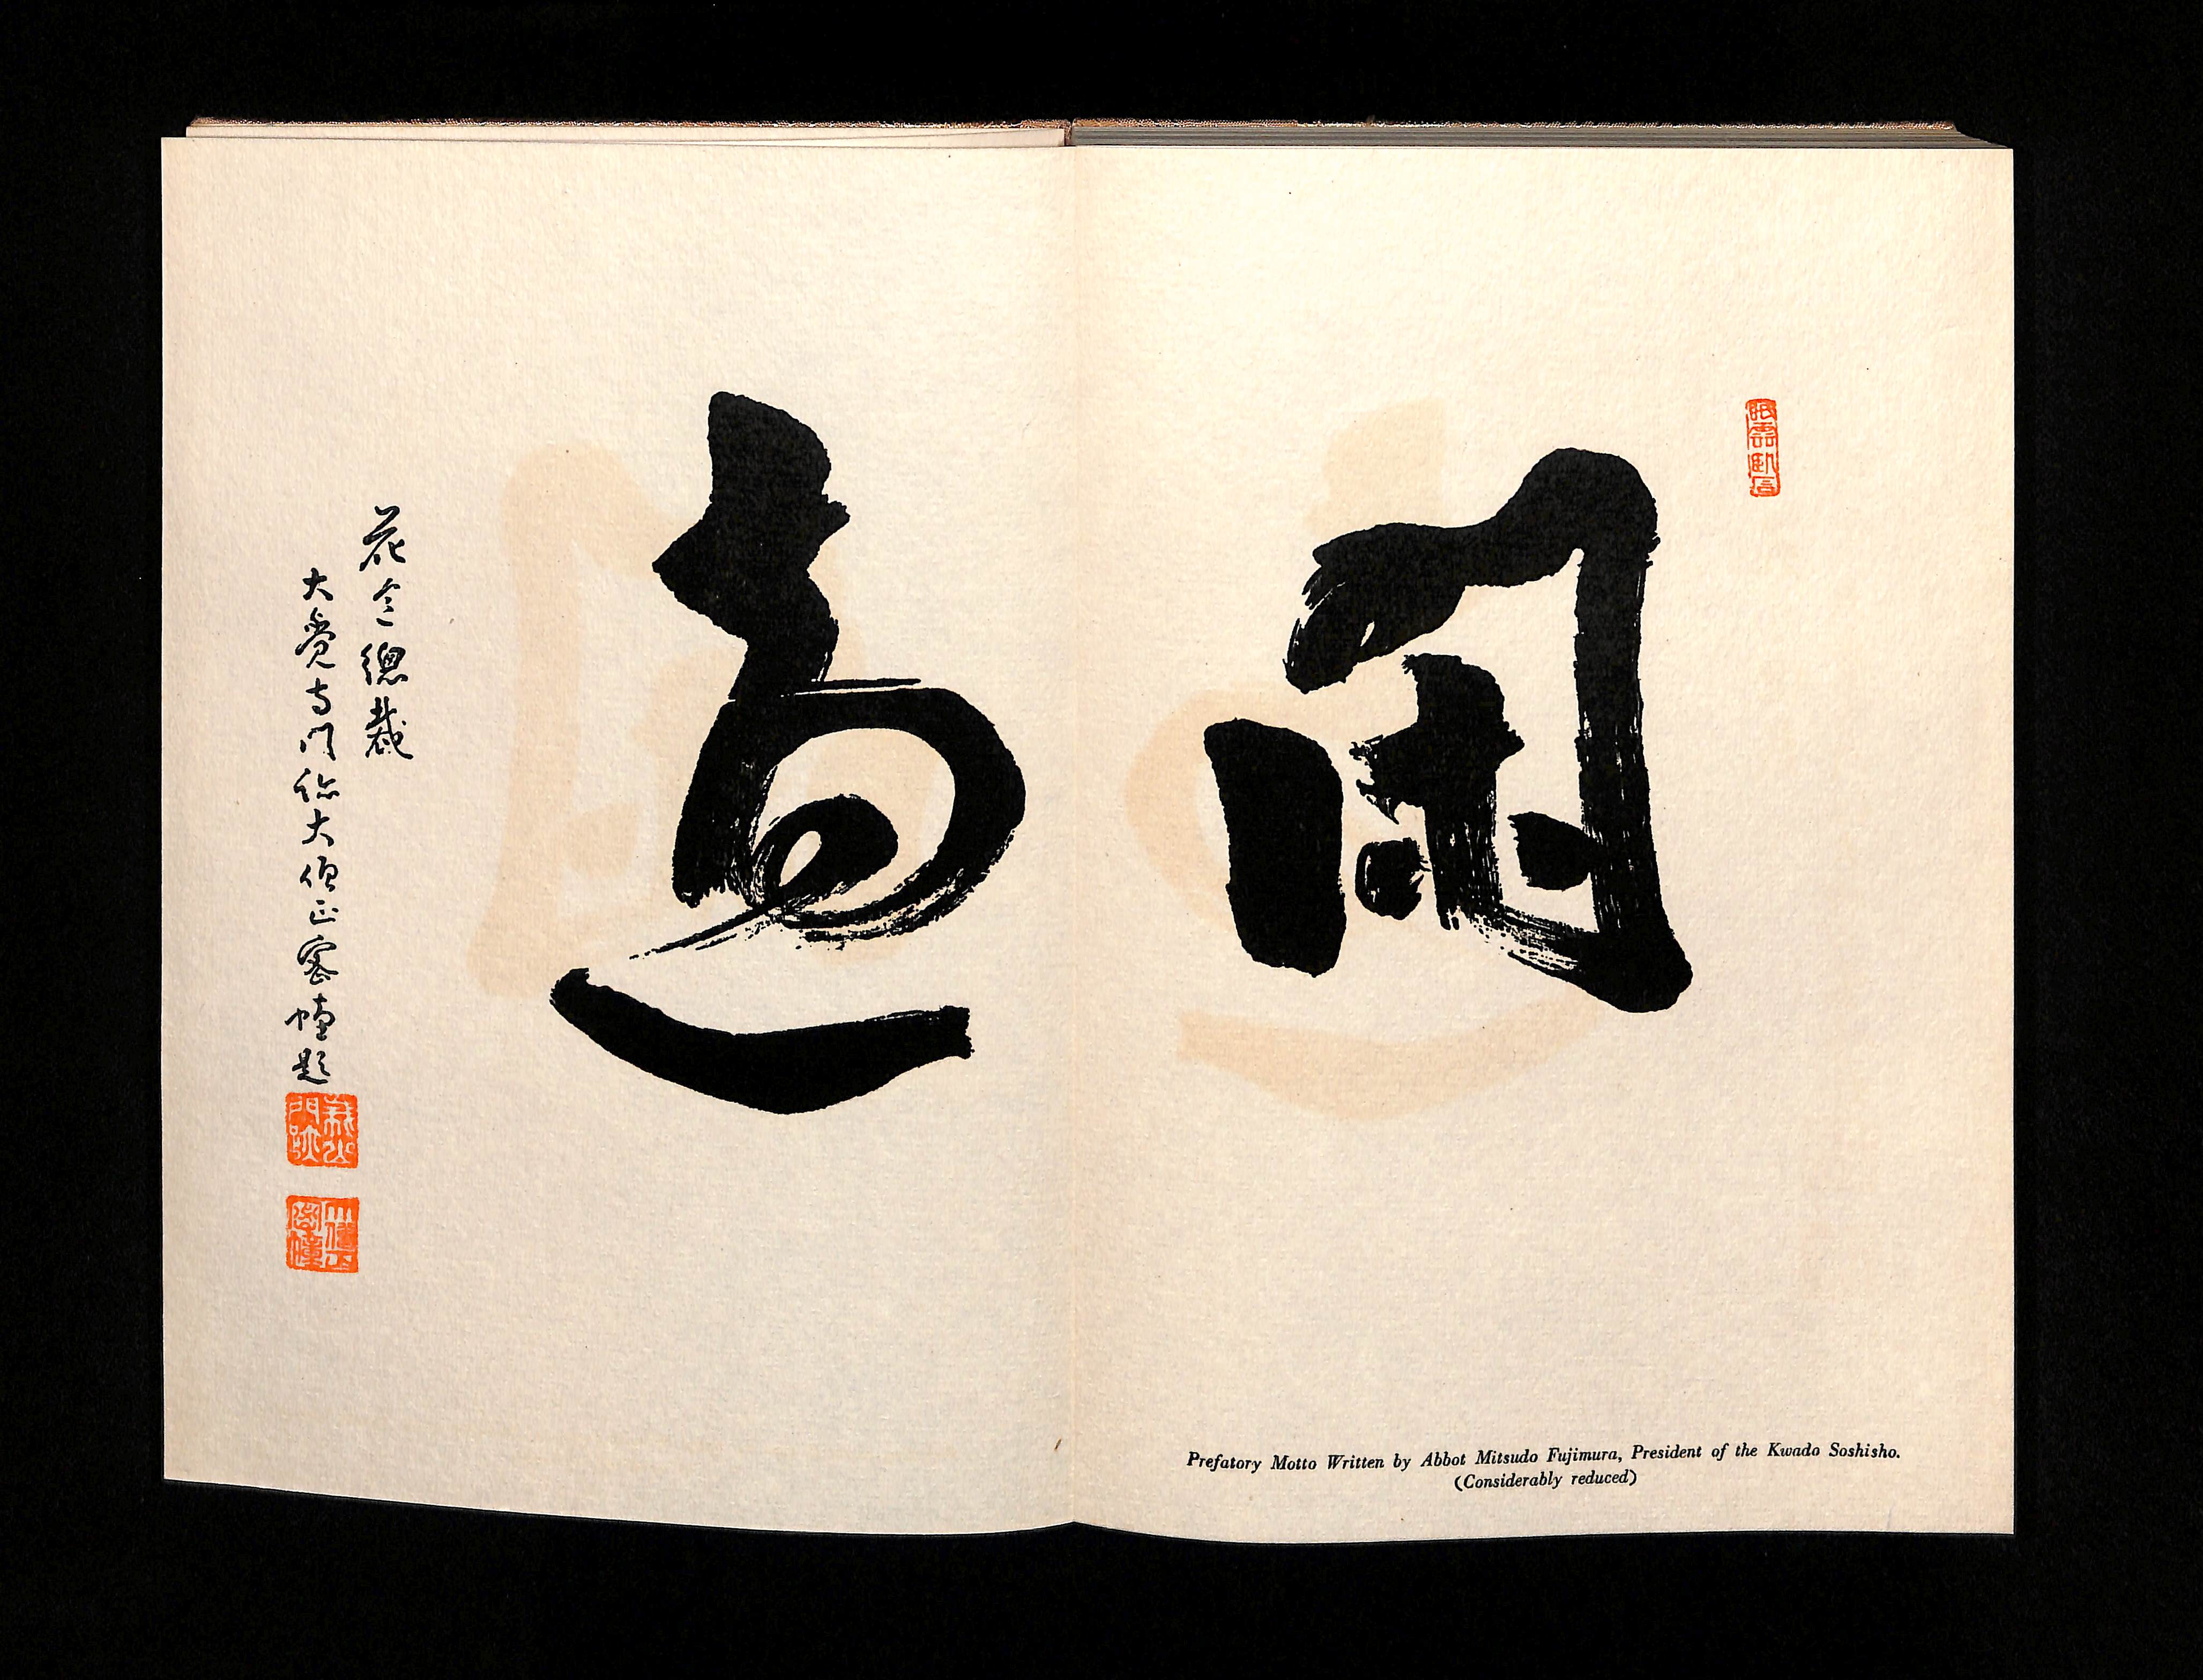 眠雲臥石
閑適
花 總裁
大覚寺門跡大僧正密幢題
大僧正密幢
Prefatory Motto Written by Abbot Mitsudo Fujimura, President of the Kwado Soshisho.
(Considerably reduced)